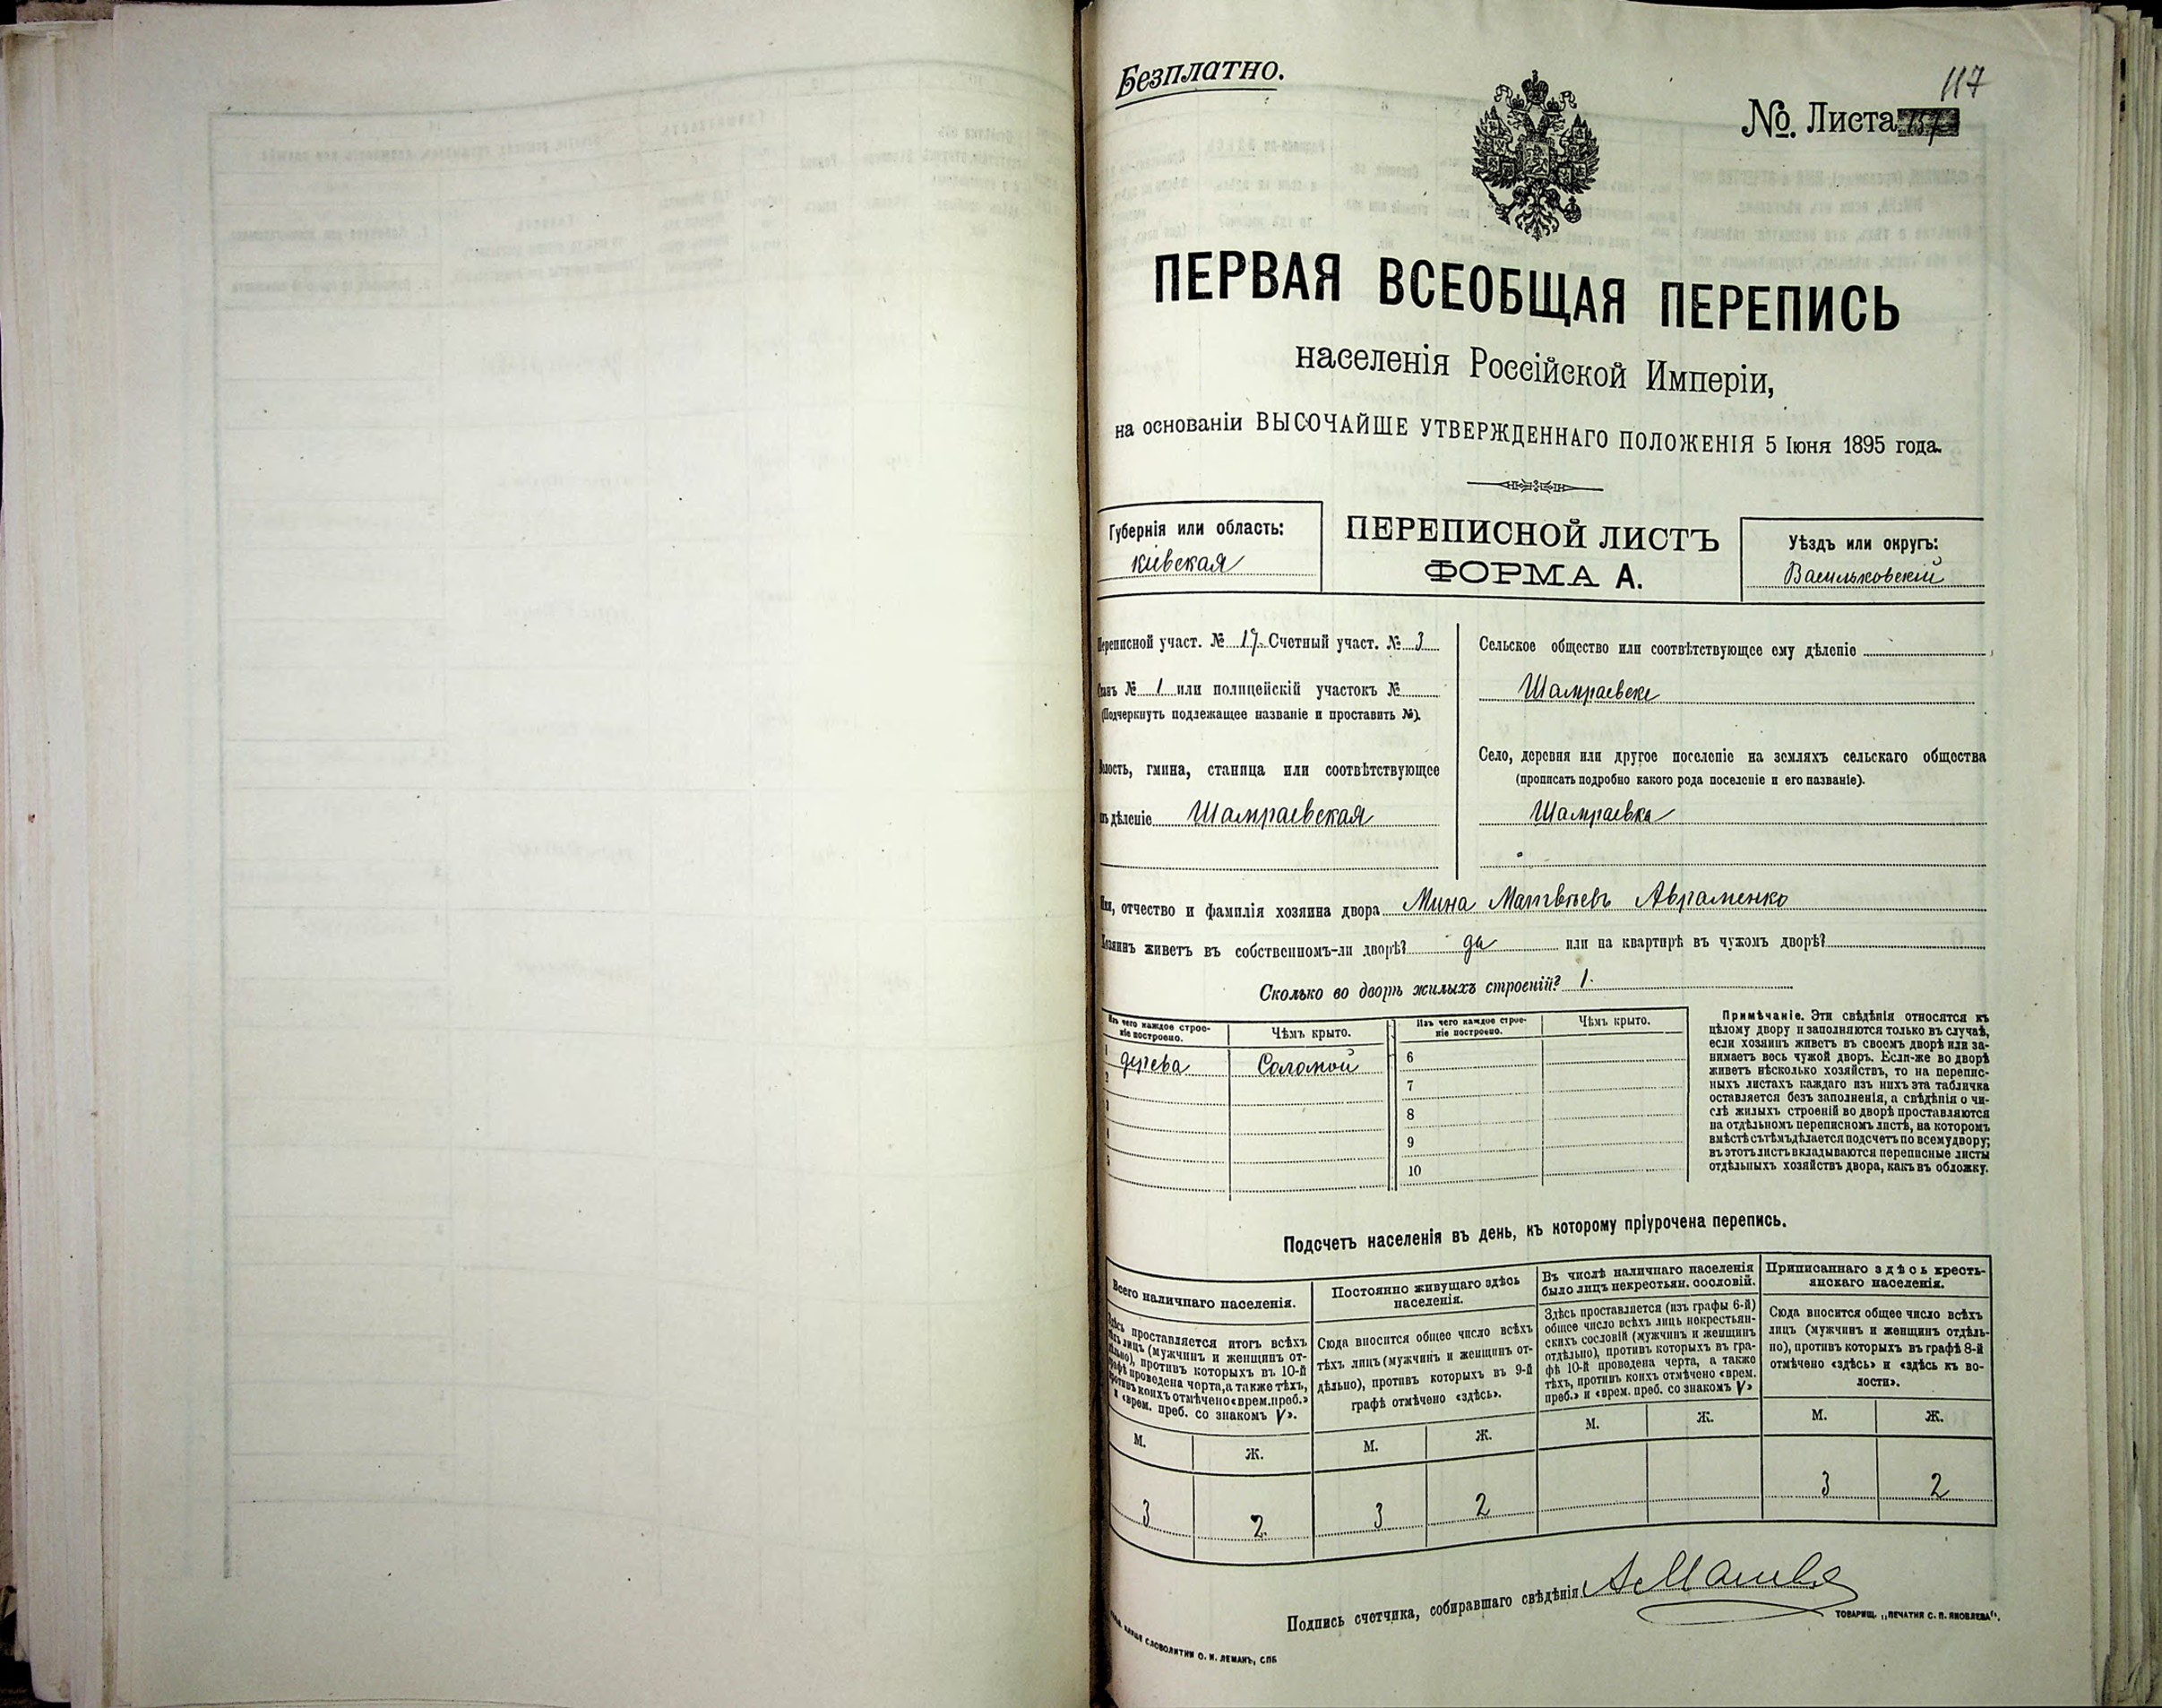 Безплатно.
117
№. Листа
ПЕРВАЯ ВСЕОБЩАЯ ПЕРЕПИСЬ
населенія Россійской Имперіи,
на основаніи ВЫСОЧАЙШЕ УТВЕРЖДЕННАГО ПОЛОЖЕНІЯ 5 Іюня 1895 года.
Губернія или область:
Кіевская
ПЕРЕПИСНОЙ ЛИСТЪ
ФОРМА А.
Уѣздъ или округъ:
Васильковскій
Переписной участ. № 17. Счетный участ. № 3
Станъ № 1 или полицейскій участокъ №
(Подчеркнуть подлежащее названіе и проставить №).
Волость, гмина, станица или соотвѣтствующее
дѣленіе Шамраевская
Сельское общество или соотвѣтствующее ему дѣленіе
Село, деревня или другое поселеніе на земляхъ сельскаго общества
(прописать подробно какого рода поселеніе и его названіе).
Шамраевка
Имя, отчество и фамилія хозяина двора Мина Матвѣевъ Авраменко
Хозяинъ живетъ въ собственномъ-ли дворѣ? да или на квартирѣ въ чужомъ дворѣ?
Сколько во дворѣ жилыхъ строеній? 1.
Изъ чего каждое строе-
ніе построено.
Чѣмъ крыто.
Изъ чего каждое строе-
ніе построено.
Чѣмъ крыто.
1 дерева Соломой
2
3
4
5
6
7
8
9
10
Примѣчаніе. Эти свѣдѣнія относятся къ
цѣлому двору и заполняются только въ случаѣ,
если хозяинъ живетъ въ своемъ дворѣ или за-
нимаетъ весь чужой дворъ. Если-же во дворѣ
живетъ нѣсколько хозяйствъ, то на перепис-
ныхъ листахъ каждаго изъ нихъ эта табличка
оставляется безъ заполненія, а свѣдѣнія о чи-
слѣ жилыхъ строеній во дворѣ проставляются
на отдѣльномъ переписномъ листѣ, на которомъ
вмѣстѣ съ тѣмъ дѣлается подсчетъ по всему двору;
въ этотъ листъ вкладываются переписные листы
отдѣльныхъ хозяйствъ двора, какъ въ обложку.
Подсчетъ населенія въ день, къ которому пріурочена перепись.
Всего наличнаго населенія.
Здѣсь проставляется итогъ всѣхъ
тѣхъ лицъ (мужчинъ и женщинъ от-
дѣльно), противъ которыхъ въ 10-й
графѣ проведена черта, а также тѣхъ,
противъ коихъ отмѣчено «врем. преб.»
и «врем. преб. со знакомъ V».
М. Ж.
3 2.
Постоянно живущаго здѣсь
населенія.
Сюда вносится общее число всѣхъ
тѣхъ лицъ (мужчинъ и женщинъ от-
дѣльно), противъ которыхъ въ 9-й
графѣ отмѣчено «здѣсь».
М. Ж.
3 2
Въ числѣ наличнаго населенія
было лицъ некрестьян. сословій.
Здѣсь проставляется (изъ графы 6-й)
общее число всѣхъ лицъ некрестьян-
скихъ сословій (мужчинъ и женщинъ
отдѣльно), противъ которыхъ въ гра-
фѣ 10-й проведена черта, а также
тѣхъ, противъ коихъ отмѣчено «врем.
преб.» и «врем. преб. со знакомъ V»
М. Ж.
Приписаннаго здѣсь кресть-
янскаго населенія.
Сюда вносится общее число всѣхъ
лицъ (мужчинъ и женщинъ отдѣль-
но), противъ которыхъ въ графѣ 8-й
отмѣчено «здѣсь» и «здѣсь къ во-
лости».
М. Ж.
3 2
Подпись счетчика, собиравшаго свѣдѣнія
СЛОВОЛИТНИ О. И. ЛЕМАНЪ, СПБ
ТОВАРИЩ. „ПЕЧАТНЯ С. П. ЯКОВЛЕВА“.